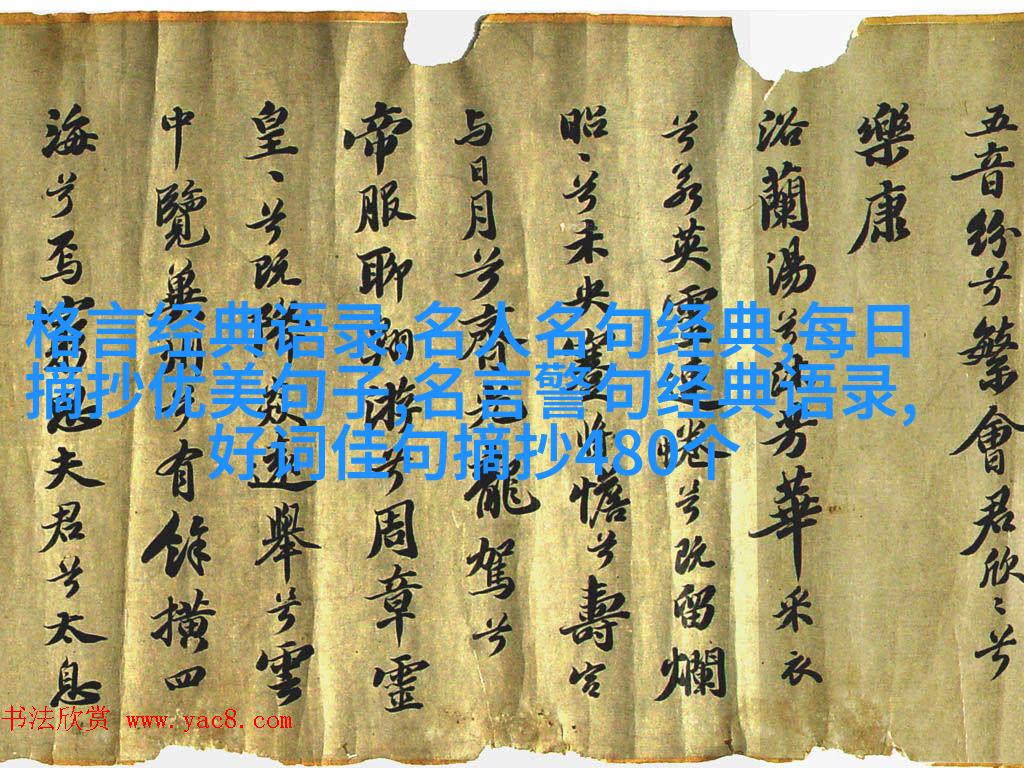 五音紛兮繁會君欣〻兮
樂康
浴蘭湯兮沐芳華采衣
兮若英靈連蜷兮既留爛
昭〻兮未央蹇将憺兮壽宮
与日月兮齊光龍駕兮
帝服聊翱游兮周章靈
皇〻兮既降猋遠舉兮雲
中覽冀州兮有餘横四
海兮焉窮思夫君兮太息
格言经典语录,名人名句经典,每日
摘抄优美句子,名言警句经典语录,
好词佳句摘抄480个
书法欣赏 www.yac8.com